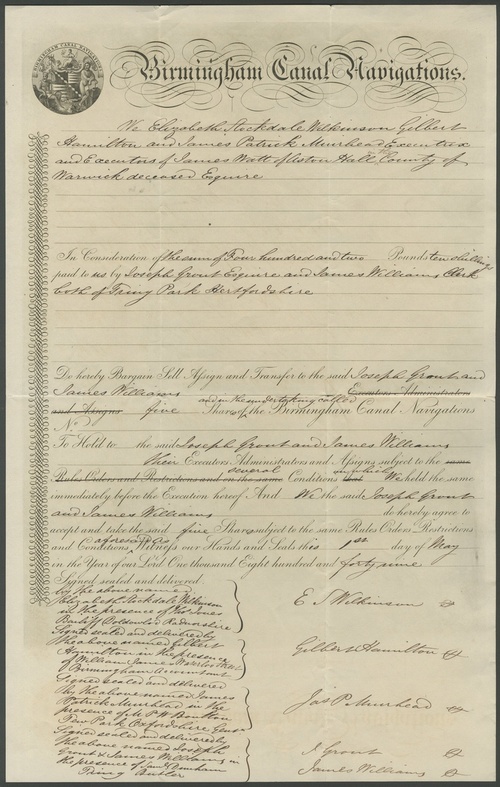 BIRMINGHAM CANAL NAVIGATIONS
Birmingham Canal Navigations.
We Elizabeth Stockdale Wilkinson Gilbert
Hamilton and James Patrick Muirhead Executrix
and Executors of James Watt of Aston Hall in the County of
Warwick deceased Esquire
In Consideration of the sum of Four hundred and two Pounds ten shillings
paid to us by Joseph Grout Esquire and James Williams Clerk
both of Tring Park Hertfordshire
Do hereby Bargain Sell Assign and Transfer to the said Joseph Grout and
James Williams Executors Administrators
and Assigns five Shares of and in the undertaking called the Birmingham Canal Navigations
No
To Hold to the said Joseph Grout and James Williams
their Executors Administrators and Assigns subject to the same
Rules Orders and Restrictions and on the same several Conditions that on which We held the same
immediately before the Execution hereof And We the said Joseph Grout
and James Williams do hereby agree to
accept and take the said five Shares subject to the same Rules Orders Restrictions
and Conditions aforesaid as Witness our Hands and Seals this 1st day of May
in the Year of our Lord One thousand Eight hundred and forty nine
Signed sealed and delivered
by the above named
Elizabeth Stockdale Wilkinson
in the presence of Thos Jones
Bailiff Radnorshire
E S Wilkinson
Signed sealed and delivered by
the above named Gilbert
Hamilton in the presence
of William Jame
Birmingham Accountant
Gilbert Hamilton
Signed sealed and delivered
by the above named James
Patrick Muirhead in the
presence of M P W Boulton
Tew Park Oxfordshire
Jas P Muirhead
Signed sealed and delivered by
the above named Joseph
Grout & James Williams in
the presence of
Tring Butler
J. Grout
James Williams